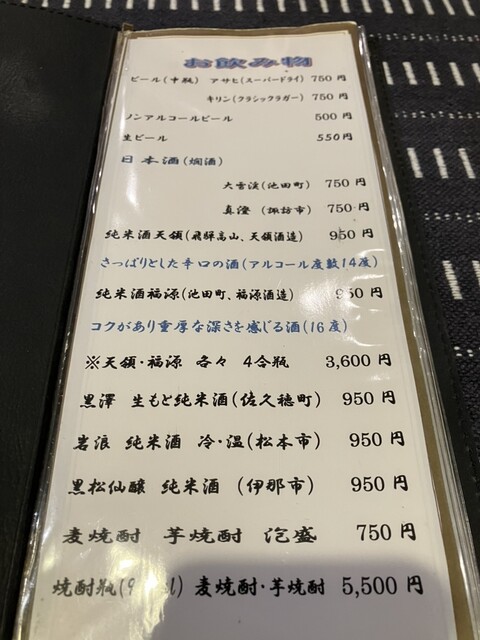 お飲み物
ビール(中瓶) アサヒ(スーパードライ) 750円
キリン(クラシックラガー) 750円
ノンアルコールビール 500円
生ビール 550円
日本酒(燗酒)
大雪渓(池田町) 750円
真澄 (諏訪市) 750円
純米酒天領(飛騨高山、天領酒造) 950円
さっぱりとした辛口の酒(アルコール度数14度)
純米酒福源(池田町、福源酒造) 950円
コクがあり重厚な深さを感じる酒(16度)
※天領・福源 各々 4合瓶 3,600円
黒澤 生もと純米酒(佐久穂町) 950円
岩浪 純米酒 冷・温(松本市) 950円
黒松仙醸 純米酒 (伊那市) 950円
麦焼酎 芋焼酎 泡盛 750円
焼酎瓶 麦焼酎・芋焼酎 5,500円